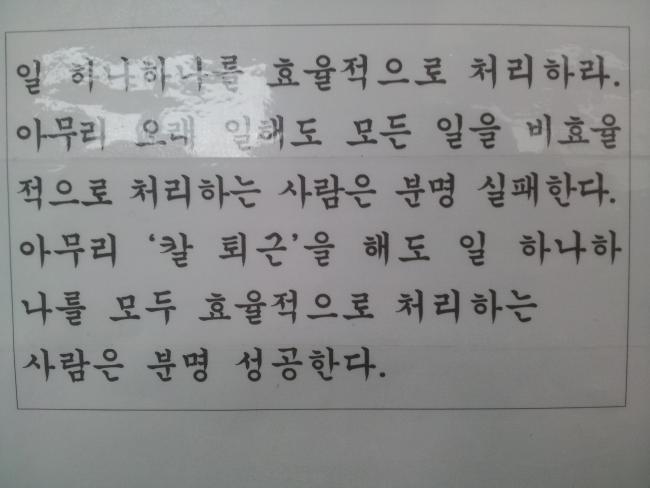 일 하나하나를 효율적으로 처리하라.
아무리 오래 일해도 모든 일을 비효율
적으로 처리하는 사람은 분명 실패한다.
아무리 ‘칼 퇴근’을 해도 일 하나하
나를 모두 효율적으로 처리하는
사람은 분명 성공한다.